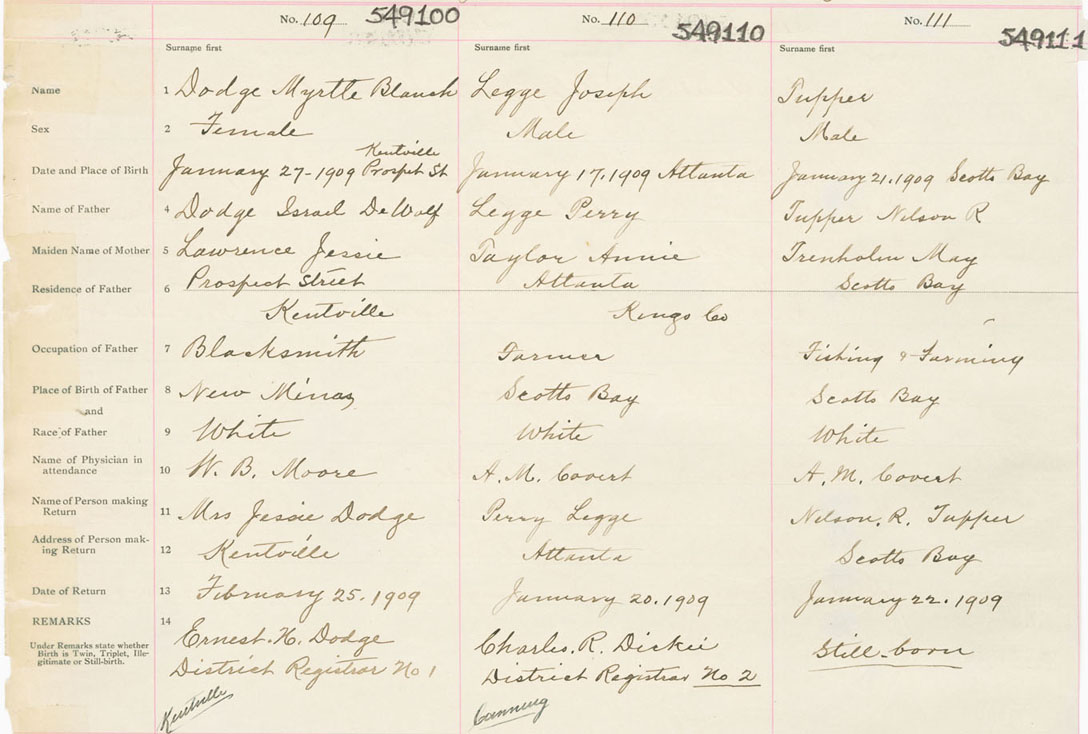 No. 109 549100 No. 110 549110 No. 111 549111
Surname first Surname first Surname first
Name 1 Dodge Myrtle Blanch Legge Joseph Tupper
Sex 2 Female Male Male
Kentville
Date and Place of Birth January 27-1909 Prospect St January 17, 1909 Attlanta January 21, 1909 Scotts Bay
Name of Father 4 Dodge Israel DeWolf Legge Perry Tupper Nelson R
Maiden Name of Mother 5 Lawrence Jessie Taylor Annie Trenholm May
Residence of Father 6 Prospect Street Attlanta Scotts Bay
Kentville Kings Co
Occupation of Father 7 Blacksmith Farmer Fishing & Farming
Place of Birth of Father 8 New Minas Scotts Bay Scotts Bay
and
Race of Father 9 White White White
Name of Physician in
attendance 10 W. B. Moore A. M. Covert A. M. Covert
Name of Person making
Return 11 Mrs Jessie Dodge Perry Legge Nelson. R. Tupper
Address of Person mak-
ing Return 12 Kentville Attlanta Scotts Bay
Date of Return 13 February 25. 1909 January 20. 1909 January 22. 1909
REMARKS 14 Ernest. H. Dodge Charles. R. Dickie Still-born
Under Remarks state whether
Birth is Twin, Triplet, Ille-
gitimate or Still-birth.
District Registrar No 1 District Registrar No 2
Kentville Canning